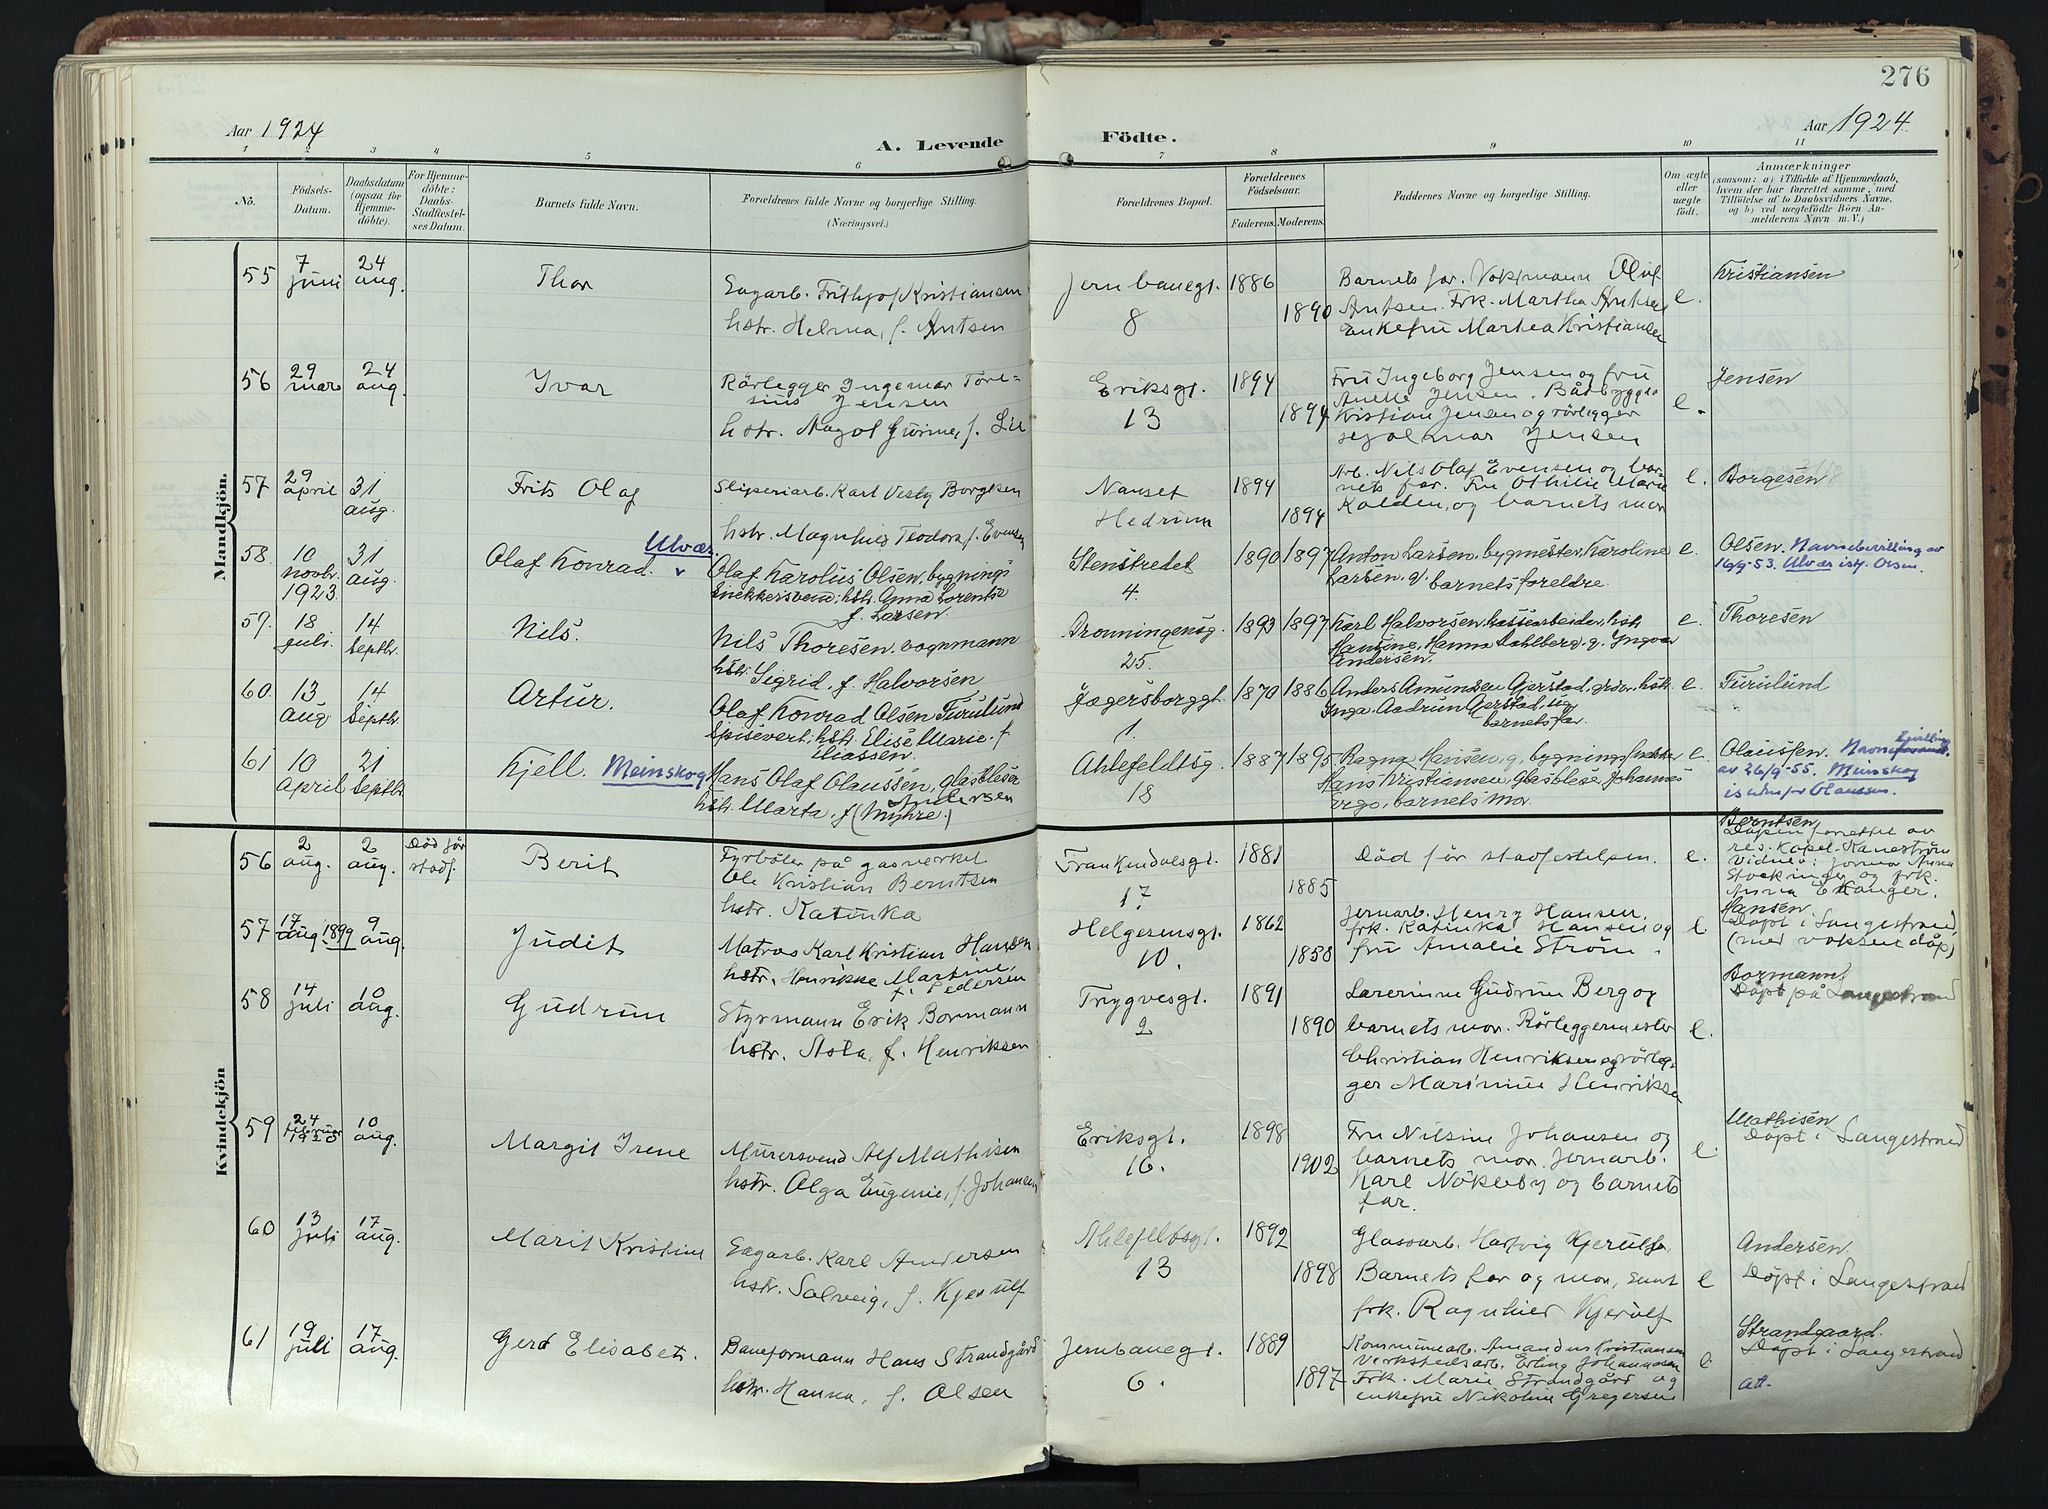 276
Aar 1924
A. Levende Födte.
Aar 1924.
1 2 3 4 5 6 7 8 9 10 11
No.
Födsels-
Datum.
Daabsdatum
(ogsaa for
Hjemme-
döbte).
For Hjemme-
döbte:
Daabs-
Stadfæstel-
ses Datum.
Barnets fulde Navn.
Forældrenes fulde Navne og borgerlige Stilling.
(Næringsvei.)
Forældrenes Bopæl.
Forældrenes
Födselsaar.
Faderens. Moderens.
Faddernes Navne og borgerlige Stilling.
Om ægte
eller
uægte
födt.
Anmærkninger
(saasom: a) i Tilfælde af Hjemmedaab,
hvem der har forrettet samme, med
Tilföielse af to Daabsvidners Navne.
og b) ved uægtefödte Börn An-
melderens Navn m. V.)
Mandkjön.
55 7 juni 24 aug. Thor
Sagarb. Frithjof Kristiansen
hstr. Helma, f. Antsen
Jernbanegt. 8
1886 1890
Barnets far. Olaf
Antsen. Frk. Martha
enkefru Marthea Kristiansen
e.
Kristiansen
56 29 mars 24 aug. Ivar
Rörlegger Ingemar Tore-
sius Jensen
hstr. Gurine, f. Lie
Eriksgt. 13
1894 1894
Fru Ingeborg Jensen og fru
Jensen. Båtbygger
Kristian Jensen og rörlegger
Hjalmar Jensen
e.
Jensen
57 29 april 31 aug. Frits Olaf
Sliperiarb. Karl Vesby Borgesen
hstr. Magnhild Teodora f. Evensen
Nanset
Hedrum
1894 1894
Arb. Nils Olaf Evensen og bar-
nets far. Fru Othilie Marie
Kolden, og barnets mor
e.
Borgesen
58. 10 novbr. 1923. 31 aug. Olaf Konrad. Ulvær
Olaf Karolus Olsen, bygnings
snekkersvend; hstr. Anna Lorentse
f. Larsen.
Stenstredet
4.
1890 1897
Anton Larsen, bygmester, Karoline
Larsen, g. barnets foreldre.
e.
Olsen. Navnebevilling av
16/9-53. Ulvær istf. Olsen.
59. 18 juli. 14 Septbr. Nils.
Nils Thoresen. vognmann
hstr. Sigrid. f. Halvorsen
Dronningensg.
25.
1893 1897
Karl Halvorsen, hstr.
Hanna Dahlberg. g. Ingvar
Andersen.
e.
Thoresen
60. 13 Aug 14 Septbr. Artur.
Olaf Konrad Olsen Furulund
spisevert; hstr. Elise Marie. f.
Eliassen.
Jægersborggt.
1.
1870 1886
Anders Amundsen Gjerstad, hstr.
Inga, Gjerstad,
barnets far.
e.
Furulund
61 10 April 21 Septbr Kjell. Meinskog
Hans Olaf Olaussen, glasblæser
hstr. Marta. f. Andersen
(Myhre.)
Ahlefeldtsg.
18
1887 1895
Ragna Hansen, g. bygningssnekker
Hans Kristiansen, glasblese. Johannes
barnets mor.
e.
Olaussen. Navnebevilling
av 26/9-55. Meinskog
istedenfor Olaussen.
Kvindekjön
56 2 aug. 2 aug. Död før stadf. Berit
Fyrböter på gasverket
Ole Kristian Berntsen
hstr. Katinka
Frankendalsgt.
17.
1881 1885
Död før stadfestelsen.
e.
Berntsen
Dåpen forrettet av
res. kapel. Kaneström
Vidner: jormor Anna
Stockinger og frk.
Anna Ekanger.
57 17 aug 1899 9 aug. Judit
Matros Karl Kristian Hansen
hstr. Henrikke Martine,
f. Pedersen
Helgeroesgt.
10.
1862 1858
Jernarb. Henry Hansen.
frk. Katinka Hansen og
fru Amalie Ström.
e.
Hansen
Döpt i Langestrand,
(med voksendåp)
58 14 juli 10 aug. Gudrun
Styrmann Erik Bormann
hstr. Asta, f. Henriksen
Trygvesgt.
2
1891 1890
Lærerinne Gudrun Berg og
barnets mor. Rörleggermester
Christian Henriksen og rörleg-
ger Marinius Henriksen
e.
Bormann.
Döpt på Langestrand
59 24 februar 1920 10 aug. Margit Irene
Murersvend Alf Mathisen
hstr. Olga Eugenie, f. Johansen
Eriksgt.
16.
1898 1902
Fru Nilsine Johansen og
barnets mor. Jernarb.
Karl Nökleby og barnets
far.
e.
Mathisen
Döpt i Langestrand
60 13 juli 17 aug. Marit Kristine
Sagarb. Karl Andersen
hstr. Solveig, f. Kjerulf
Ahlefeldsgt.
13
1892 1898
Glassarb. Hartvig Kjerulf,
Barnets far og mor, samt
frk. Ragnhild Kjerulf
e
Andersen.
Döpt i Langestrand
61 19 juli 17 aug. Gerd Elisabet.
Baneformann Hans Strandgård
hstr. Hanna, f. Olsen
Jernbanegt.
6.
1889 1897
Kommunearb. Amandus Kristiansen
Verkstedsarb. Erling Johannesen
Frk. Marie Strandgård og
enkefru Nikoline Gregersen
e.
Strandgaard.
Döpt i Langestrand